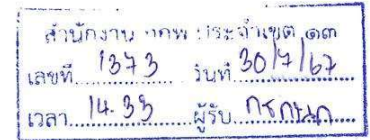 สำนักงาน กกพ. ประจำเขต ๑๓
เลขที่ 1373 วันที่ 30/7/67
เวลา 14.33 ผู้รับ